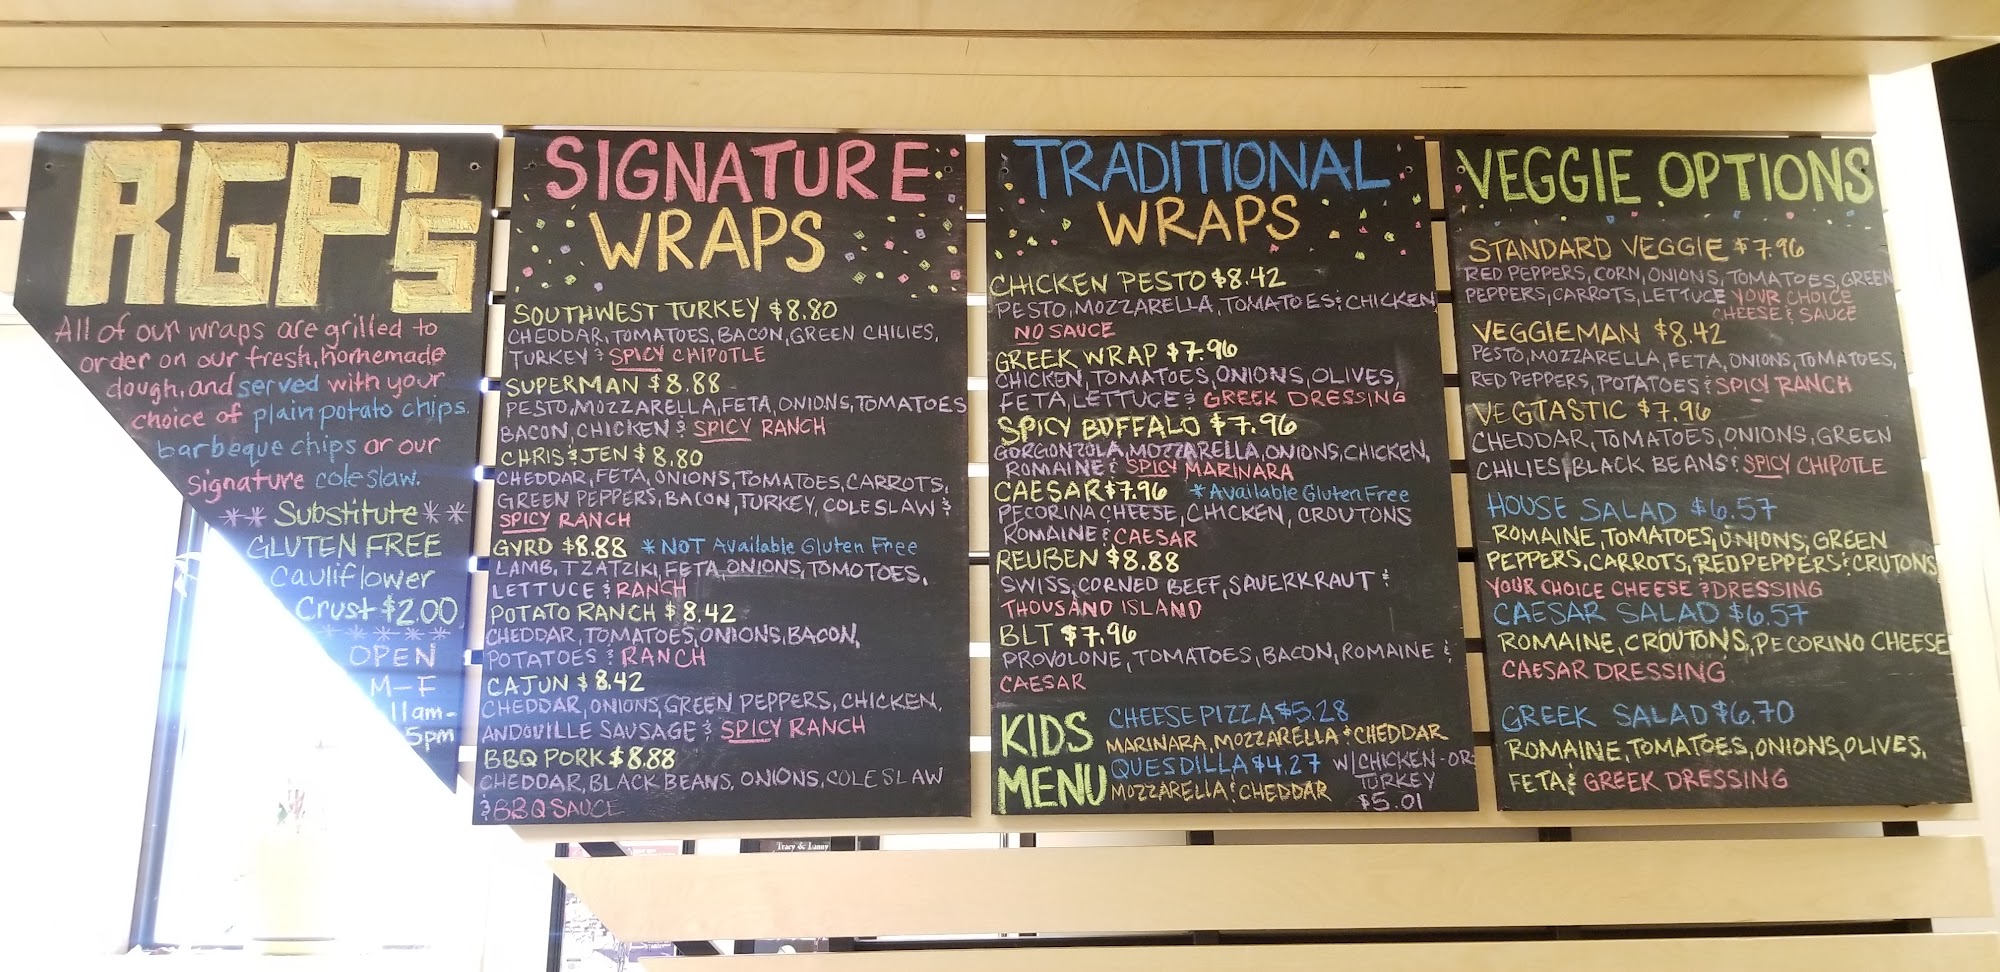 RGP's
All of our wraps are grilled to
order on our fresh, homemade
dough, and served with your
choice of plain potato chips,
barbeque chips or our
signature coleslaw.
** Substitute **
GLUTEN FREE
Cauliflower
Crust $2.00
*****
OPEN
M-F
11am-
5pm
SIGNATURE
WRAPS
SOUTHWEST TURKEY $8.80
CHEDDAR, TOMATOES, BACON, GREEN CHILIES,
TURKEY & SPICY CHIPOTLE
SUPERMAN $8.88
PESTO, MOZZARELLA, FETA, ONIONS, TOMATOES
BACON, CHICKEN & SPICY RANCH
CHRIS & JEN $8.80
CHEDDAR, FETA, ONIONS, TOMATOES, CARROTS,
GREEN PEPPERS, BACON, TURKEY, COLESLAW &
SPICY RANCH
GYRO $8.88 *NOT Available Gluten Free
LAMB, TZATZIKI, FETA, ONIONS, TOMOTOES,
LETTUCE & RANCH
POTATO RANCH $8.42
CHEDDAR, TOMATOES, ONIONS, BACON,
POTATOES & RANCH
CAJUN $8.42
CHEDDAR, ONIONS, GREEN PEPPERS, CHICKEN,
ANDOVILLE SAUSAGE & SPICY RANCH
BBQ PORK $8.88
CHEDDAR, BLACK BEANS, ONIONS, COLESLAW
& BBQ SAUCE
TRADITIONAL
WRAPS
CHICKEN PESTO $8.42
PESTO, MOZZARELLA, TOMATOES & CHICKEN
NO SAUCE
GREEK WRAP $7.96
CHICKEN, TOMATOES, ONIONS, OLIVES,
FETA, LETTUCE & GREEK DRESSING
SPICY BUFFALO $7.96
GORGONZOLA, MOZZARELLA, ONIONS, CHICKEN,
ROMAINE & SPICY MARINARA
CAESAR $7.96 *Available Gluten Free
PECORINA CHEESE, CHICKEN, CROUTONS
ROMAINE & CAESAR
REUBEN $8.88
SWISS, CORNED BEEF, SAUERKRAUT &
THOUSAND ISLAND
BLT $7.96
PROVOLONE, TOMATOES, BACON, ROMAINE &
CAESAR
KIDS
MENU
CHEESE PIZZA $5.28
MARINARA, MOZZARELLA & CHEDDAR
QUESDILLA $4.27 W/CHICKEN-OR-
MOZZARELLA & CHEDDAR TURKEY
$5.01
VEGGIE OPTIONS
STANDARD VEGGIE $7.96
RED PEPPERS, CORN, ONIONS, TOMATOES, GREEN
PEPPERS, CARROTS, LETTUCE YOUR CHOICE
CHEESE & SAUCE
VEGGIEMAN $8.42
PESTO, MOZZARELLA, FETA, ONIONS, TOMATOES,
RED PEPPERS, POTATOES & SPICY RANCH
VEGTASTIC $7.96
CHEDDAR, TOMATOES, ONIONS, GREEN
CHILIES, BLACK BEANS & SPICY CHIPOTLE
HOUSE SALAD $6.57
ROMAINE, TOMATOES, ONIONS, GREEN
PEPPERS, CARROTS, RED PEPPERS & CRUTONS
YOUR CHOICE CHEESE & DRESSING
CAESAR SALAD $6.57
ROMAINE, CROUTONS, PECORINO CHEESE
CAESAR DRESSING
GREEK SALAD $6.70
ROMAINE, TOMATOES, ONIONS, OLIVES,
FETA & GREEK DRESSING
Tracy & Lanny